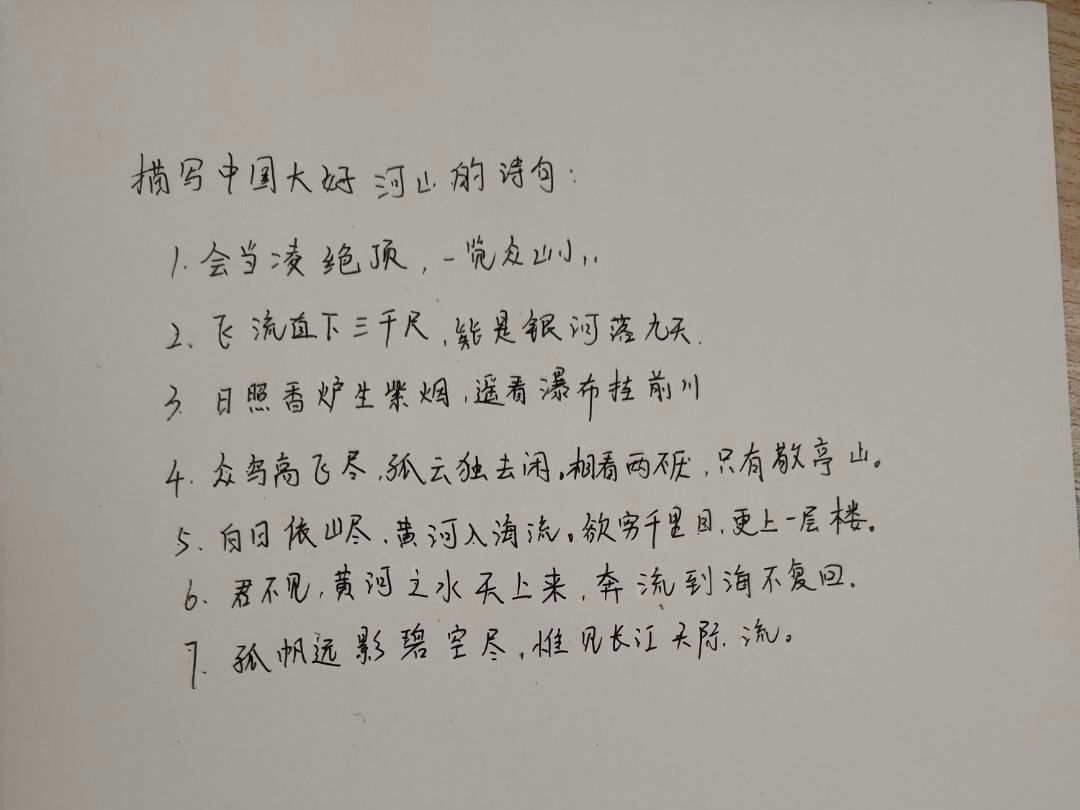 描写中国大好河山的诗句：
1. 会当凌绝顶，一览众山小..
2、飞流直下三千尺，能是银河落九天.
3. 日照香炉生紫烟，遥看瀑布挂前川
4. 众鸟高飞尽，孤云独去闲。相看两不厌，只有敬亭山。
5、白日依山尽，黄河入海流。欲穷千里目，更上一层楼。
6. 君不见，黄河之水天上来，奔流到海不复回.
7. 孤帆远影碧空尽，惟见长江天际流。